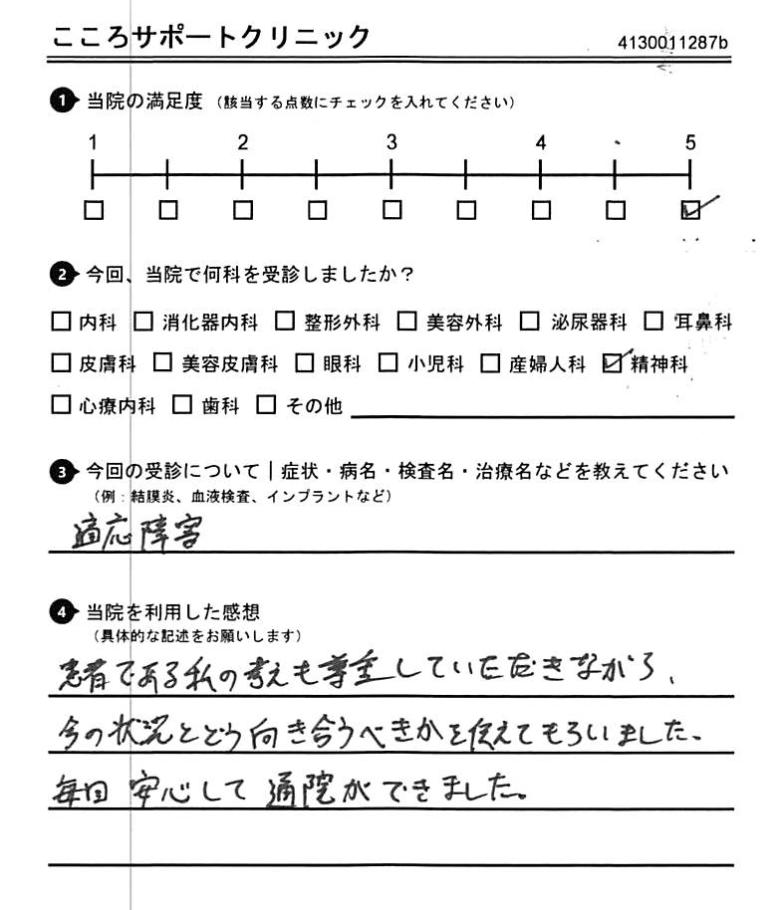 こころサポートクリニック 4130011287b
❶ 当院の満足度 (該当する点数にチェックを入れてください)
1 2 3 4 5
□ □ □ □ □ □ □ □ ☑
❷ 今回、当院で何科を受診しましたか?
□ 内科 □ 消化器内科 □ 整形外科 □ 美容外科 □ 泌尿器科 □ 耳鼻科
□ 皮膚科 □ 美容皮膚科 □ 眼科 □ 小児科 □ 産婦人科 ☑ 精神科
□ 心療内科 □ 歯科 □ その他
❸ 今回の受診について|症状・病名・検査名・治療名などを教えてください
(例:結膜炎、血液検査、インプラントなど)
適応障害
❹ 当院を利用した感想
(具体的な記述をお願いします)
患者である私の考えも尊重していただきながら、
今の状況とどう向き合うべきかを伝えてもらいました。
毎回 安心して 通院ができました。